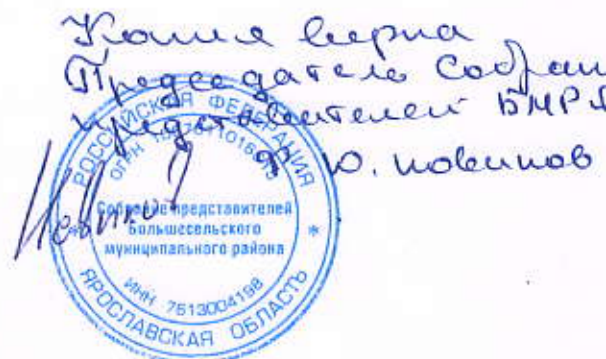 Копия верна
Председатель Собрани
представителей БМР Я
Ю. Новиков
РОССИЙСКАЯ ФЕДЕРАЦИЯ
ОГРН
Собрание представителей
Большесельского
муниципального района
ИНН 7613004198
* ЯРОСЛАВСКАЯ ОБЛАСТЬ *